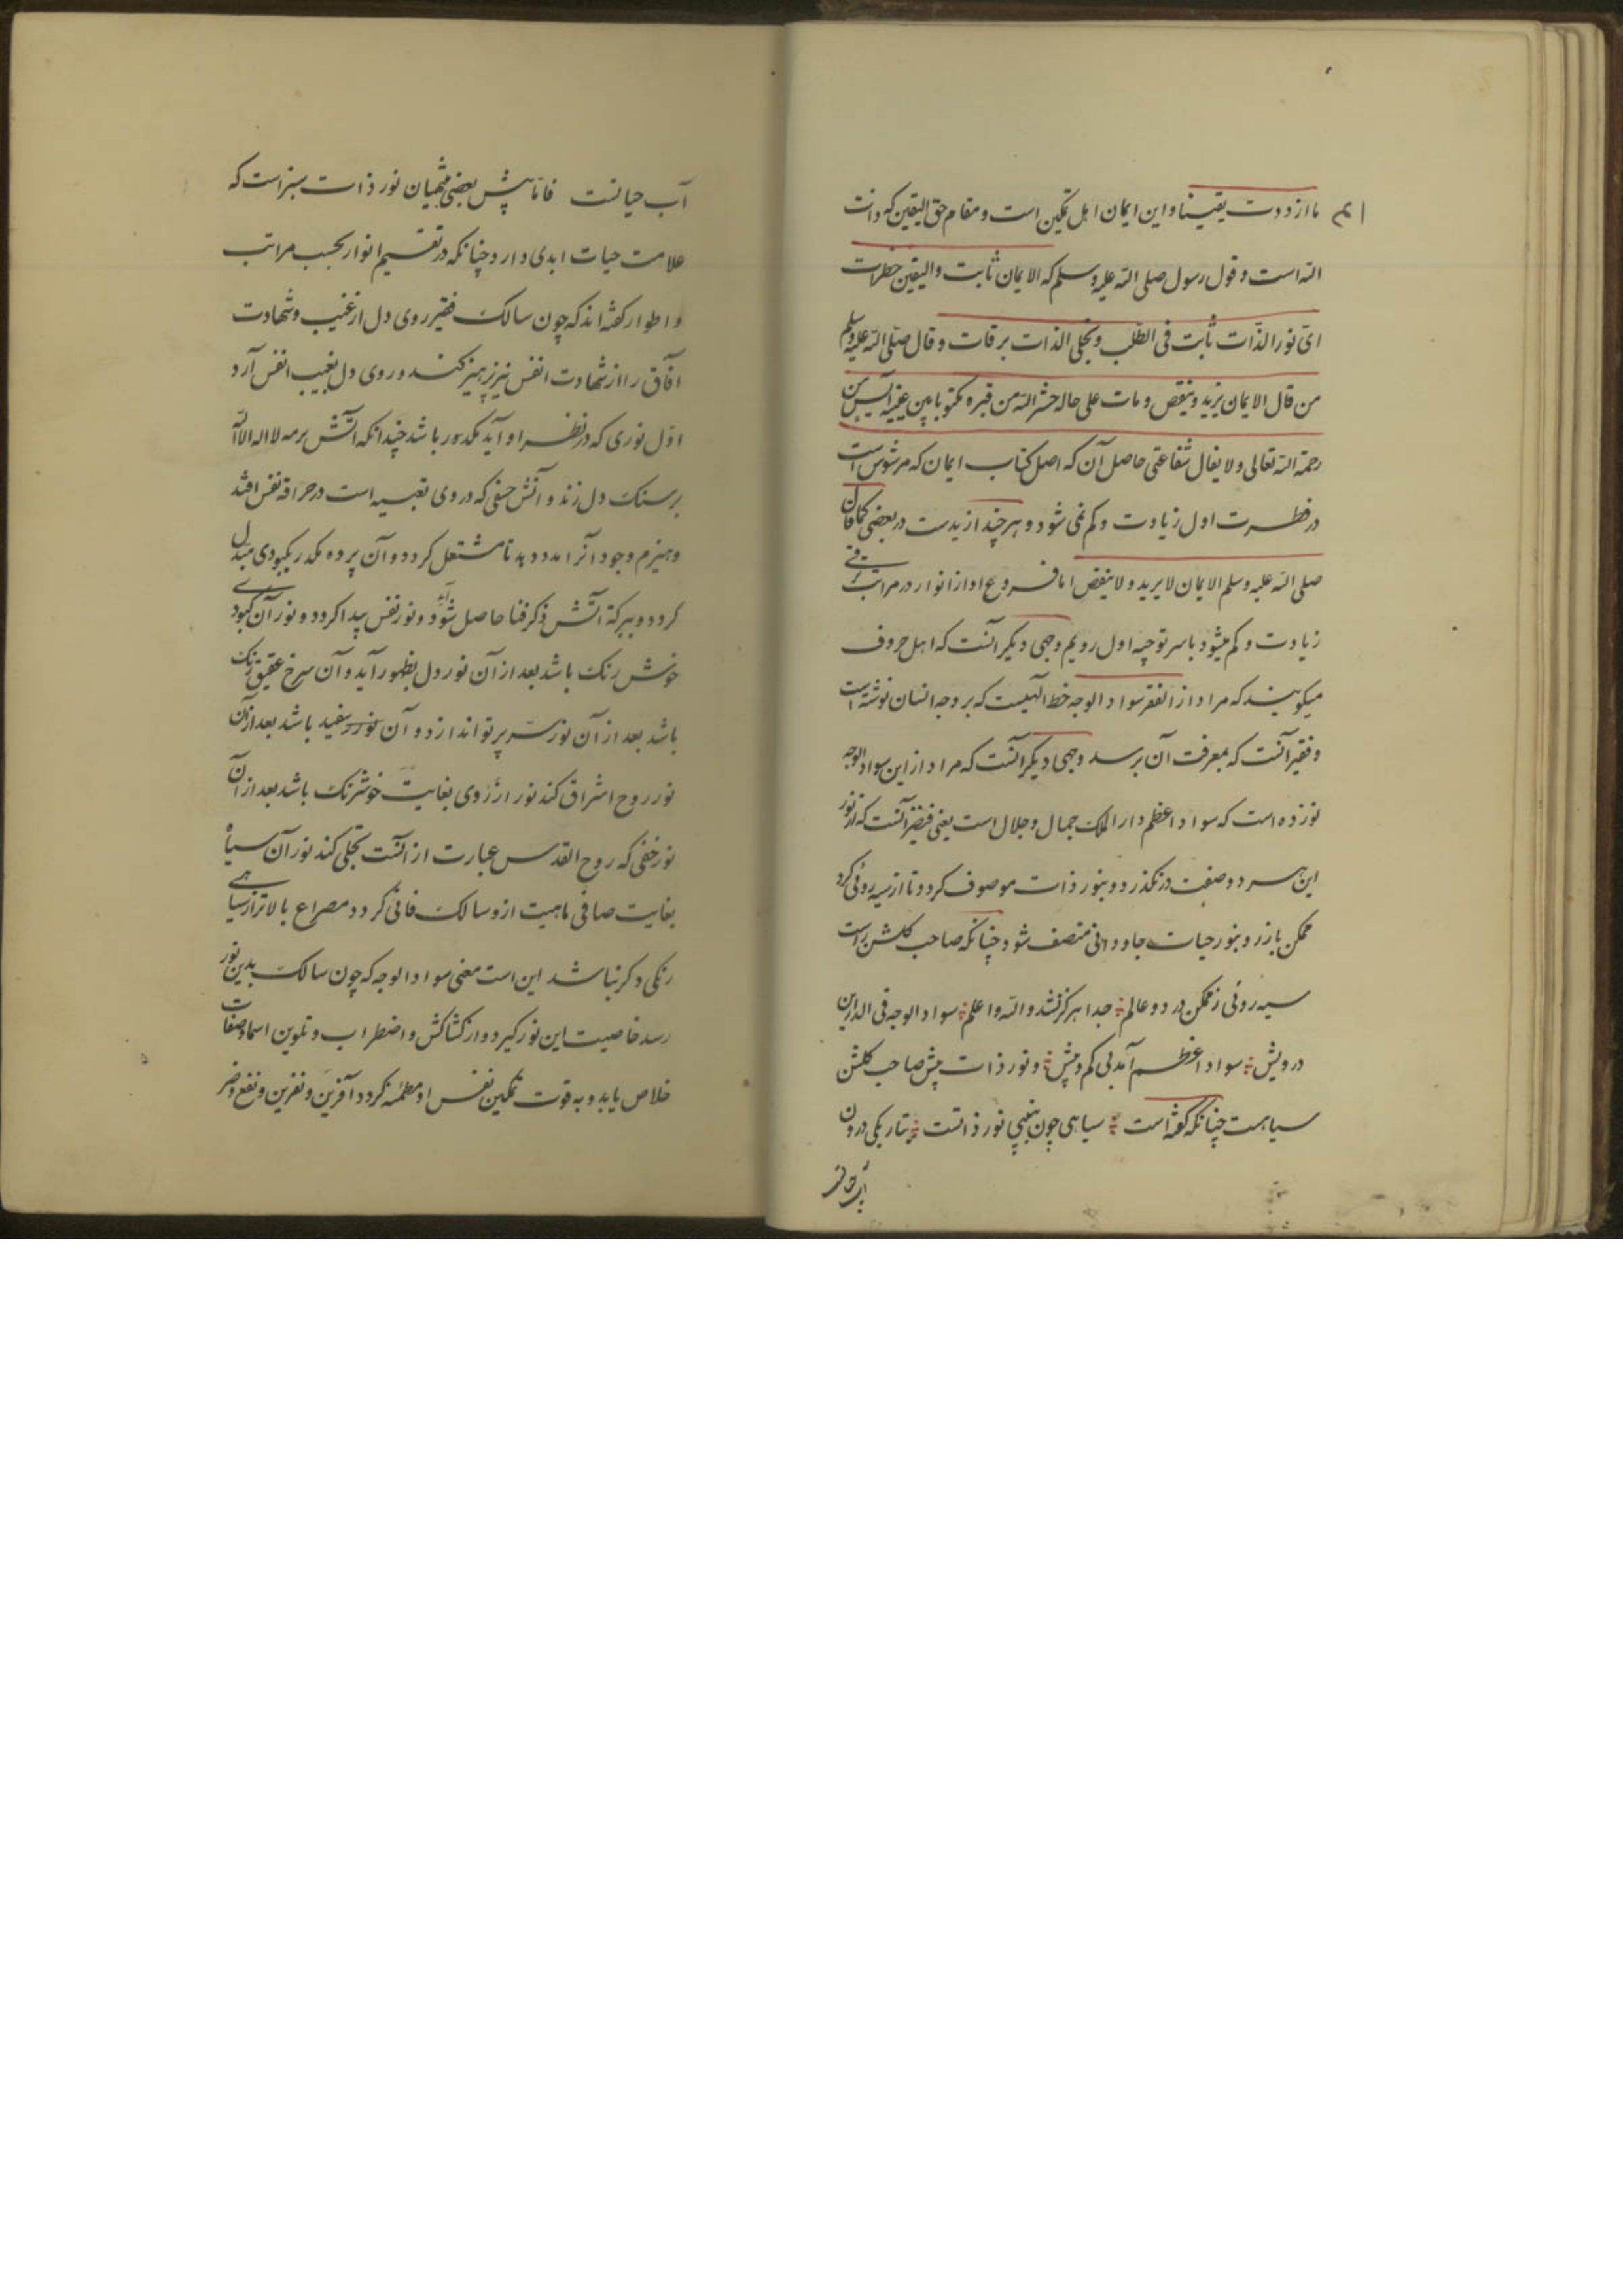 ما ازددت یقینا و این ایمان اهل تمکین است و مقام حق الیقین که ذات
الله است و قول رسول صلی الله علیه وسلم که الایمان ثابت والیقین خطرات
ای نور الذات ثابت فی الطلب و تجلی الذات برقات و قال صلی الله علیه وسلم
من قال الایمان یزید و ینقص و مات علی حاله حشر الله من قبره مکتوبا بین عینیه آیس من
رحمة الله تعالی و لا ینال شفاعتی حاصل آن که اصل کتاب ایمان که مرشوش است
در فطرت اول زیادت و کم نمی شود و هر چند از یدست در بعضی کما قال
صلی الله علیه وسلم الایمان لا یزید و لا ینقص اما فروع او از انوار در مراتب ترقی
زیادت و کم میشود باسر توجیه اول رویم وجهی دیگر آنست که اهل حروف
میکویند که مراد از الفقر سواد الوجه خط الهیست که بر وجه انسان نوشته است
و فقیر آنست که بمعرفت آن برسد وجهی دیکر آنست که مراد از این سواد الوجه
نور ذه است که سواد اعظم دار الملک جمال و جلال است یعنی فقیر آنست که از نور
این سر دو صفت درنکذرد و بنور ذات موصوف کردد تا از سیه روئی کرد
ممکن باز رو بنور حیات جاودانی متصف شود چنانکه صاحب کلشن راست
سیه روئی ز ممکن در دو عالم جدا هرکز نشد والله اعلم سواد الوجه فی الدارین
درویش سواد اعظم آمد بی کم و بیش و نور ذات پیش صاحب کلشن
سیاهست چنانکه کفته است سیاهی چون ببینی نور ذاتست بتاریکی درون
آب حیا
آب حیاتست فاما پیش بعضی منتهیان نور ذات سبز است که
علامت حیات ابدی دارد چنانکه در تقسیم انوار بحسب مراتب
و اطوار کفته اند که چون سالک فقیر روی دل از غیب و شهادت
آفاق را از شهادت انفس نیز پرهیز کند و روی دل بغیب انفس آرد
اول نوری که در نظر او آید مکدور باشد چندانکه آتش برمه لا اله الا الله
بر سنک دل زند و آتش خفی که در وی تعبیه است در حراقه نفس افتد
و هیزم وجود آنرا مدد دهد تا مشتعل کردد و آن پرده مکدر بکبودی مبدل
کردد و ببرکة آتش ذکر فنا حاصل شود و نور نفس پیدا کردد و نور آن کبودی
خوش رنک باشد بعد از آن نور دل بظهور آید و آن سرخ عقیق رنک
باشد بعد از آن نور سر پرتو اندازد و آن نور سفید باشد بعد از آن
نور روح اشراق کند نور او زردی بغایت خوشرنک باشد بعد از آن
نور خفی که روح القدس عبارت از آنست تجلی کند نور آن سیاه
بغایت صافی باهیبت ازو سالک فانی کردد مصراع بالاتر از سیاهی
رنکی دکر نباشد این است معنی سواد الوجه که چون سالک بدین نور
رسد خاصیت این نور کیرد و از کشاکش و اضطراب و تلوین اسما و صفات
خلاص یابد و به قوت تمکین نفس او مطمئنه کردد آفرین و نفرین و نفع و ضر